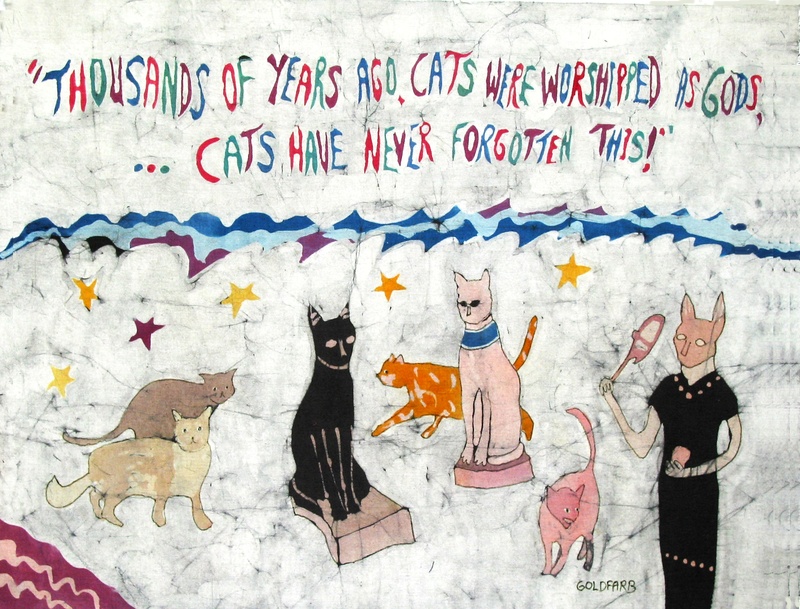 "THOUSANDS OF YEARS AGO, CATS WERE WORSHIPPED AS GODS,
... CATS HAVE NEVER FORGOTTEN THIS!"
GOLDFARB